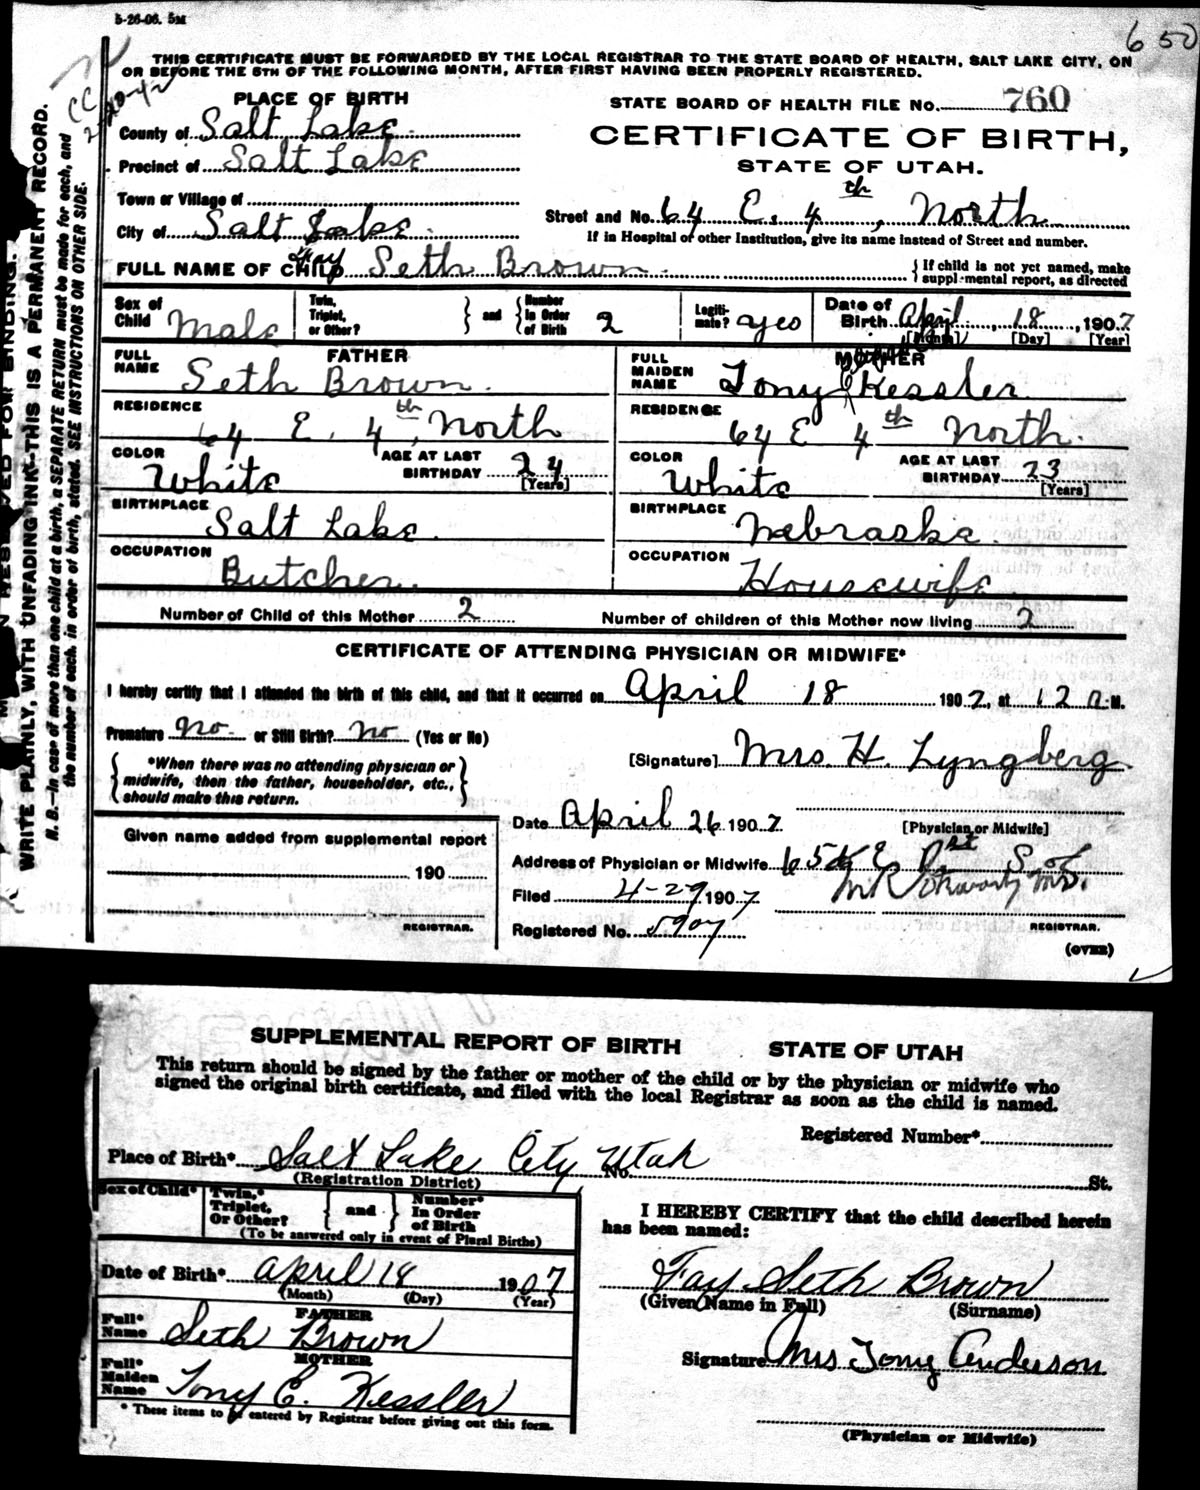 5-26-06. 5M
650
THIS CERTIFICATE MUST BE FORWARDED BY THE LOCAL REGISTRAR TO THE STATE BOARD OF HEALTH, SALT LAKE CITY, ON
OR BEFORE THE 5TH OF THE FOLLOWING MONTH, AFTER FIRST HAVING BEEN PROPERLY REGISTERED.
CC
PLACE OF BIRTH
STATE BOARD OF HEALTH FILE No. 760
County of Salt Lake
CERTIFICATE OF BIRTH,
Precinct of Salt Lake
STATE OF UTAH.
Town or Village of
Street and No. 64 E. 4th, North
City of Salt Lake
If in Hospital or other Institution, give its name instead of Street and number.
FULL NAME OF CHILD Fay Seth Brown
{ If child is not yet named, make
supplemental report, as directed
Sex of Child Male
Twin, Triplet, or Other? } and { Number in Order of Birth 2
Legitimate? yes
Date of Birth April 18, 1907
[Month] [Day] [Year]
FATHER
MOTHER
FULL NAME Seth Brown
FULL MAIDEN NAME Tony E Kessler
RESIDENCE 64 E. 4th, North
RESIDENCE 64 E 4th North.
COLOR White AGE AT LAST BIRTHDAY 24 [Years]
COLOR White AGE AT LAST BIRTHDAY 23 [Years]
BIRTHPLACE Salt Lake
BIRTHPLACE Nebraska
OCCUPATION Butcher
OCCUPATION Housewife
Number of Child of this Mother 2
Number of children of this Mother now living 2
CERTIFICATE OF ATTENDING PHYSICIAN OR MIDWIFE*
I hereby certify that I attended the birth of this child, and that it occurred on April 18 1907, at 12 M.
Premature no or Still Birth? no (Yes or No)
[Signature] Mrs. H. Lyngberg
{ *When there was no attending physician or
midwife, then the father, householder, etc.,
should make this return. }
Date April 26 1907
[Physician or Midwife]
Given name added from supplemental report
190
REGISTRAR.
Address of Physician or Midwife
Filed 4-29, 1907
Registered No. 5907
REGISTRAR.
(OVER)
WRITE PLAINLY, WITH UNFADING INK—THIS IS A PERMANENT RECORD.
N. B.—In case of more than one child at a birth, a SEPARATE RETURN must be made for each, and
the number of each, in order of birth, stated. SEE INSTRUCTIONS ON OTHER SIDE.
SUPPLEMENTAL REPORT OF BIRTH STATE OF UTAH
This return should be signed by the father or mother of the child or by the physician or midwife who
signed the original birth certificate, and filed with the local Registrar as soon as the child is named.
Registered Number*
Place of Birth* Salt Lake City Utah No. St.
(Registration District)
Sex of Child*
Twin,* Triplet, Or Other? { and } Number* In Order of Birth
(To be answered only in event of Plural Births)
I HEREBY CERTIFY that the child described herein
has been named:
Date of Birth* April 18 1907
(Month) (Day) (Year)
Fay Seth Brown
(Given Name in Full) (Surname)
FATHER
Full* Name Seth Brown
MOTHER
Full* Maiden Name Tony E. Kessler
Signature Mrs Tony Anderson
* These items to be entered by Registrar before giving out this form.
(Physician or Midwife)